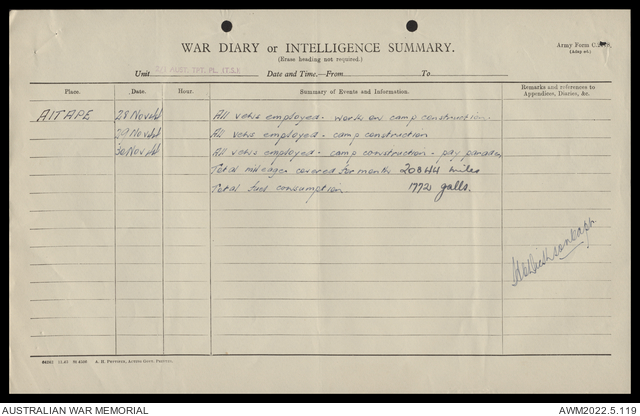 WAR DIARY or INTELLIGENCE SUMMARY.
(Erase heading not required.)
Army Form C.
Unit TPT. PL. (T.S.) Date and Time.—From To
Place. Date. Hour. Summary of Events and Information. Remarks and references to Appendices, Diaries, &c.
AITAPE 28 Nov 44 All vehs employed - works on camp construction.
29 Nov 44 All vehs employed - camp construction
30 Nov 44 All vehs employed - camp construction - pay parades
Total mileage covered for month 20344 miles
Total fuel consumption 1772 galls.
AUSTRALIAN WAR MEMORIAL
AWM2022.5.119